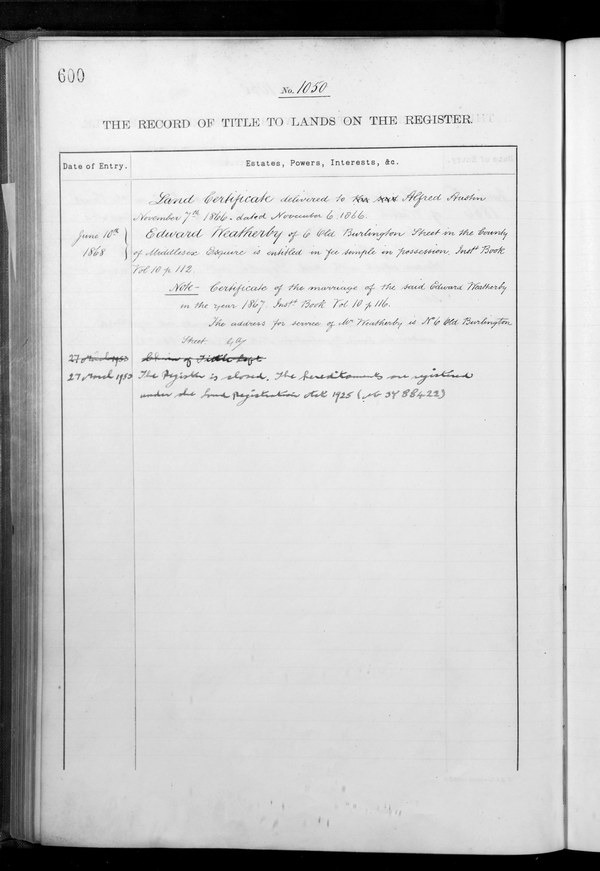 600
No. 1050
THE RECORD OF TITLE TO LANDS ON THE REGISTER.
Date of Entry.
Estates, Powers, Interests, &c.
Land Certificate delivered to Alfred Austin
November 7th 1866. dated November 6 1866.
June 10th 1868
Edward Weatherby of 6 Old Burlington Street in the County
of Middlesex Esquire is entitled in fee simple in possession. Inst Book
Vol 10 p 112.
Note - Certificate of the marriage of the said Edward Weatherby
in the year 1867. Inst Book Vol 10 p 116.
The address for service of Mr Weatherby is No 6 Old Burlington
Street
27 March 1953
27 March 1953 The Register is closed. The hereditaments are registered
under the Land Registration Act 1925